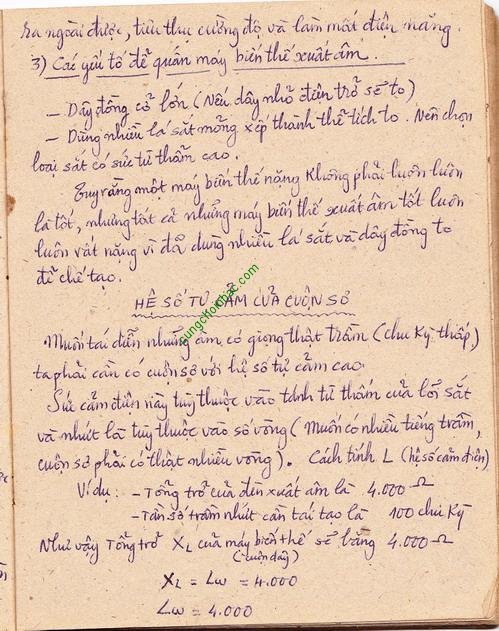 ra ngoài được, tiêu thụ cường độ và làm mất điện năng.
3) Các yếu tố để quấn máy biến thế xuất âm.
- Dây đồng cỡ lớn (Nếu dây nhỏ điện trở sẽ to)
- Dùng nhiều lá sắt mỏng xếp thành thể tích to. Nên chọn
loại sắt có sức từ thẩm cao.
Tuy rằng một máy biến thế nặng không phải luôn luôn
là tốt, nhưng tất cả những máy biến thế xuất âm tốt luôn
luôn vật nặng vì đã dùng nhiều lá sắt và dây đồng to
để chế tạo.
HỆ SỐ TỰ CẢM CỦA CUỘN SƠ
Muốn tái diễn những âm có giọng thật trầm (chu kỳ thấp,)
ta phải cần có cuộn sơ với hệ số tự cảm cao.
Sức cảm điện này tùy thuộc vào tánh từ thẩm của lõi sắt
và nhứt là tùy thuộc vào số vòng (Muốn có nhiều tiếng trầm,
cuộn sơ phải có thật nhiều vòng). Cách tính L (hệ số cảm điện)
Ví dụ: - Tổng trở của đèn xuất âm là 4.000 Ω
- Tần số trầm nhứt cần tái tạo là 100 chu kỳ
Như vậy Tổng trở XL của máy biến thế sẽ bằng 4.000 Ω
(cuộn dây)
XL = Lω = 4.000
Lω = 4.000
sungchoikhac.com